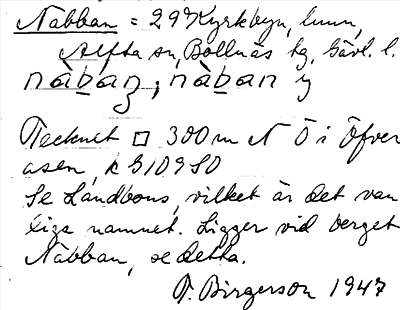 Nabban = 29 Kyrkbyn, lunn,
Alfta sn, Bollnäs hg, Gävl. l.
nàban, nàban y
Tecknet □ 300 m N Ö i Öfver
asen, k G 109 SO
Se Landbons, vilket är det van
liga namnet. Ligger vid berget
Nabban, se detta.
F. Birgerson 1947